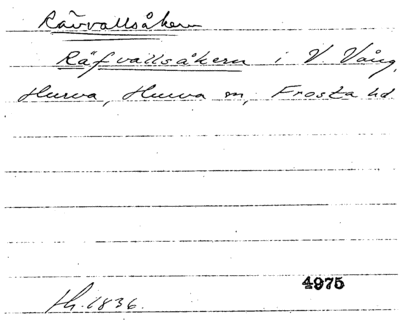 Rävvallsåkern
Räfvallsåkern i V. Vång,
Hurva, Hurva sn, Frosta hd
4975
Sk. 1836.